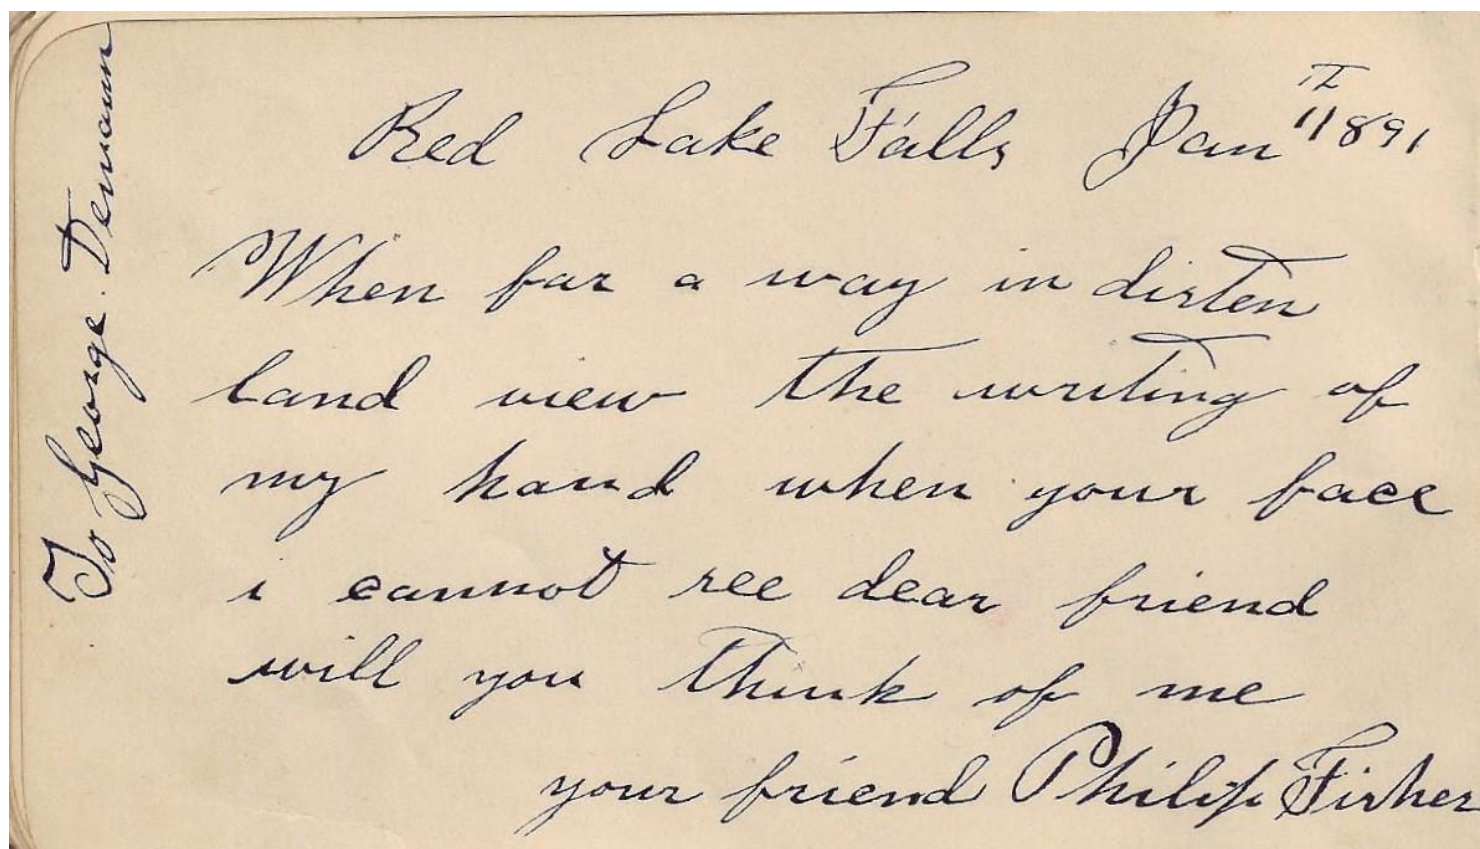 To George. Demann
Red Lake Falls Jan 11 1891
When far a way in disten
land view the writing of
my hand when your face
i cannot see dear friend
will you think of me
your friend Philip Fisher